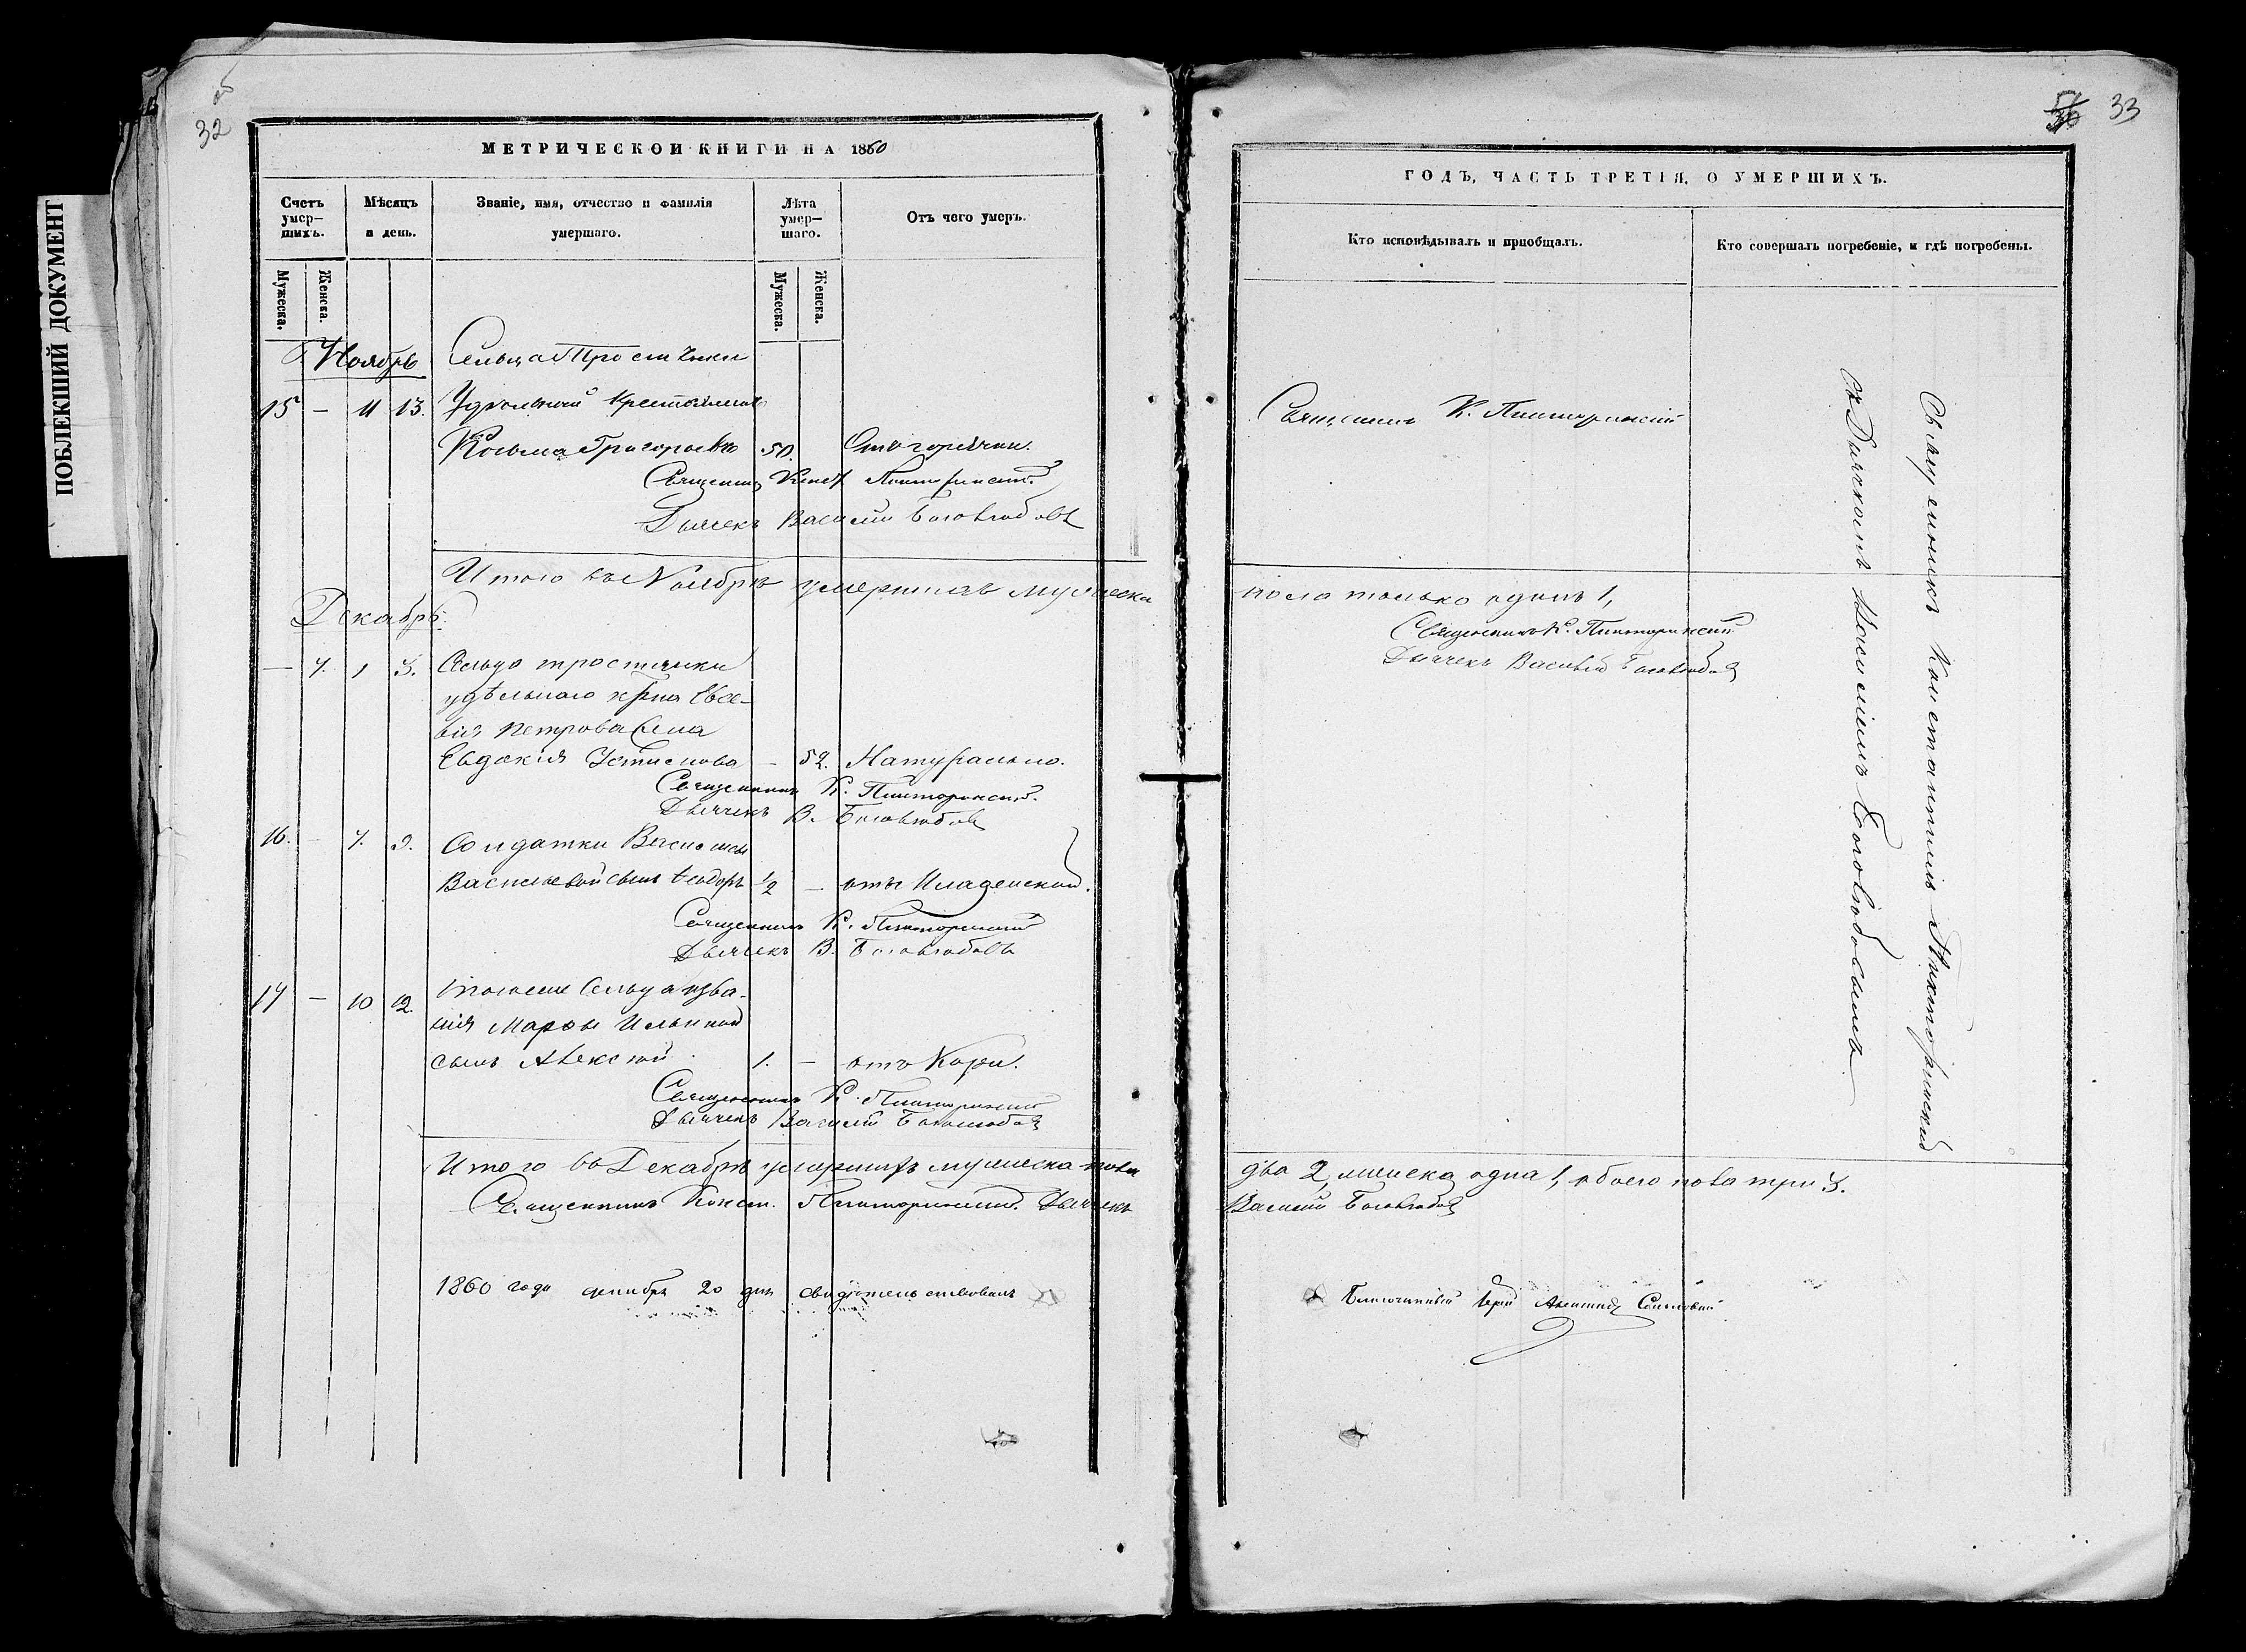 ПОБЛЕКШИЙ ДОКУМЕНТ
32
МЕТРИЧЕСКОЙ КНИГИ НА 1860
Счетъ умер-
шихъ.
Мѣсяцъ
и день.
Званіе, имя, отчество и фамилія
умершаго.
Лѣта
умер-
шаго.
Отъ чего умеръ.
Мужеска.
Женска.
Мужеска.
Женска.
Ноябрь
Сельца Тростянки
15 – 11 13. Удѣльный крестьянинъ
Косьма Григорьевъ 50. Отъ горячки.
Священникъ Конст. Пикторинскій
Дьячекъ Василій Боголюбовъ
Итого въ Ноябрѣ умершихъ мужеска
Декабрь.
– 7. 1 3. Сельца тростянки
удѣльнаго кр-на Евсе-
вія Петрова жена
Евдокія Устинова – 52. Натурально.
Священникъ К. Пикторинскій.
Дьячекъ В. Боголюбовъ
16. – 7. 9. Солдатки Василисы
Васильевой сынъ Ѳеодоръ 1/2 – отъ младенской.
Священникъ К. Пикторинскій
Дьячекъ В. Боголюбовъ
17 – 10 12. тогоже Сельца
Марѳы Ильиной
сынъ Алексѣй 1. – отъ Кори.
Священникъ К. Пикторинскій
Дьячекъ Василій Боголюбовъ
Итого въ Декабрѣ умершихъ мужеска пола
Священникъ Конст. Пикторинскій. Дьячекъ
1860 года декабря 20 дня свидѣтельствовалъ
33
ГОДЪ, ЧАСТЬ ТРЕТІЯ, О УМЕРШИХЪ.
Кто исповѣдывалъ и пріобщалъ.
Кто совершалъ погребеніе, и гдѣ погребены.
Священникъ К. Пикторинскій
Священникъ Константинъ Пикторинскій
съ Дьячкомъ Василіемъ Боголюбовымъ
пола только одинъ 1,
Священникъ К. Пикторинскій
Дьячекъ Василій Боголюбовъ
два 2, женска одна 1, обоего пола три 3.
Василій Боголюбовъ
Благочинный Іерей